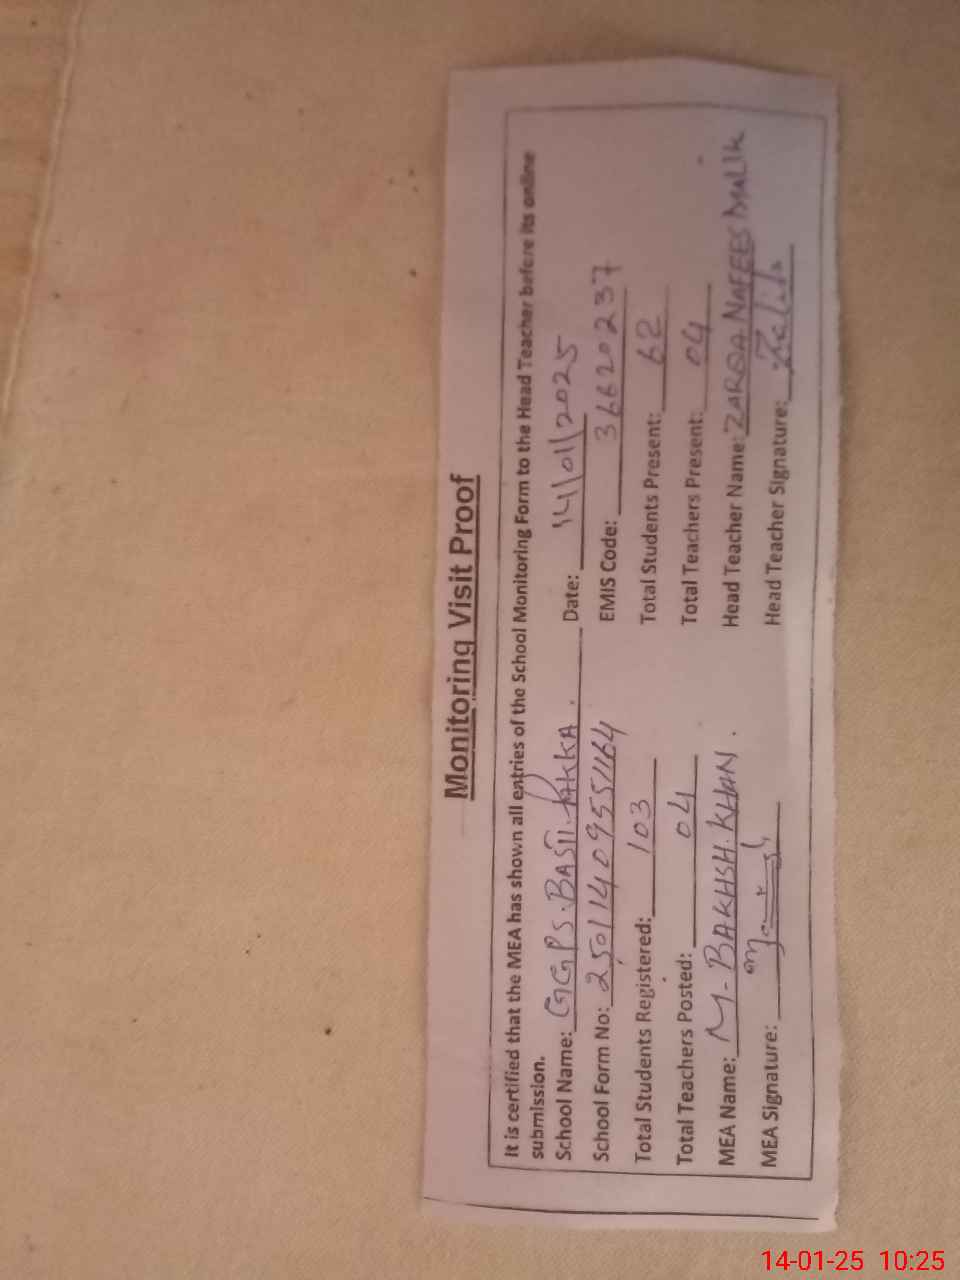 Monitoring Visit Proof
It is certified that the MEA has shown all entries of the School Monitoring Form to the Head Teacher before its online
submission.
School Name: GGPS.BASTI.PAKKA. Date: 14/01/2025
School Form No: 25011409551164 EMIS Code: 36620237
Total Students Registered: 103 Total Students Present: 62
Total Teachers Posted: 04 Total Teachers Present: 04
MEA Name: M-BAKHSH.KHAN. Head Teacher Name: ZARQA NAFEES MALIK
MEA Signature: Head Teacher Signature:
14-01-25 10:25